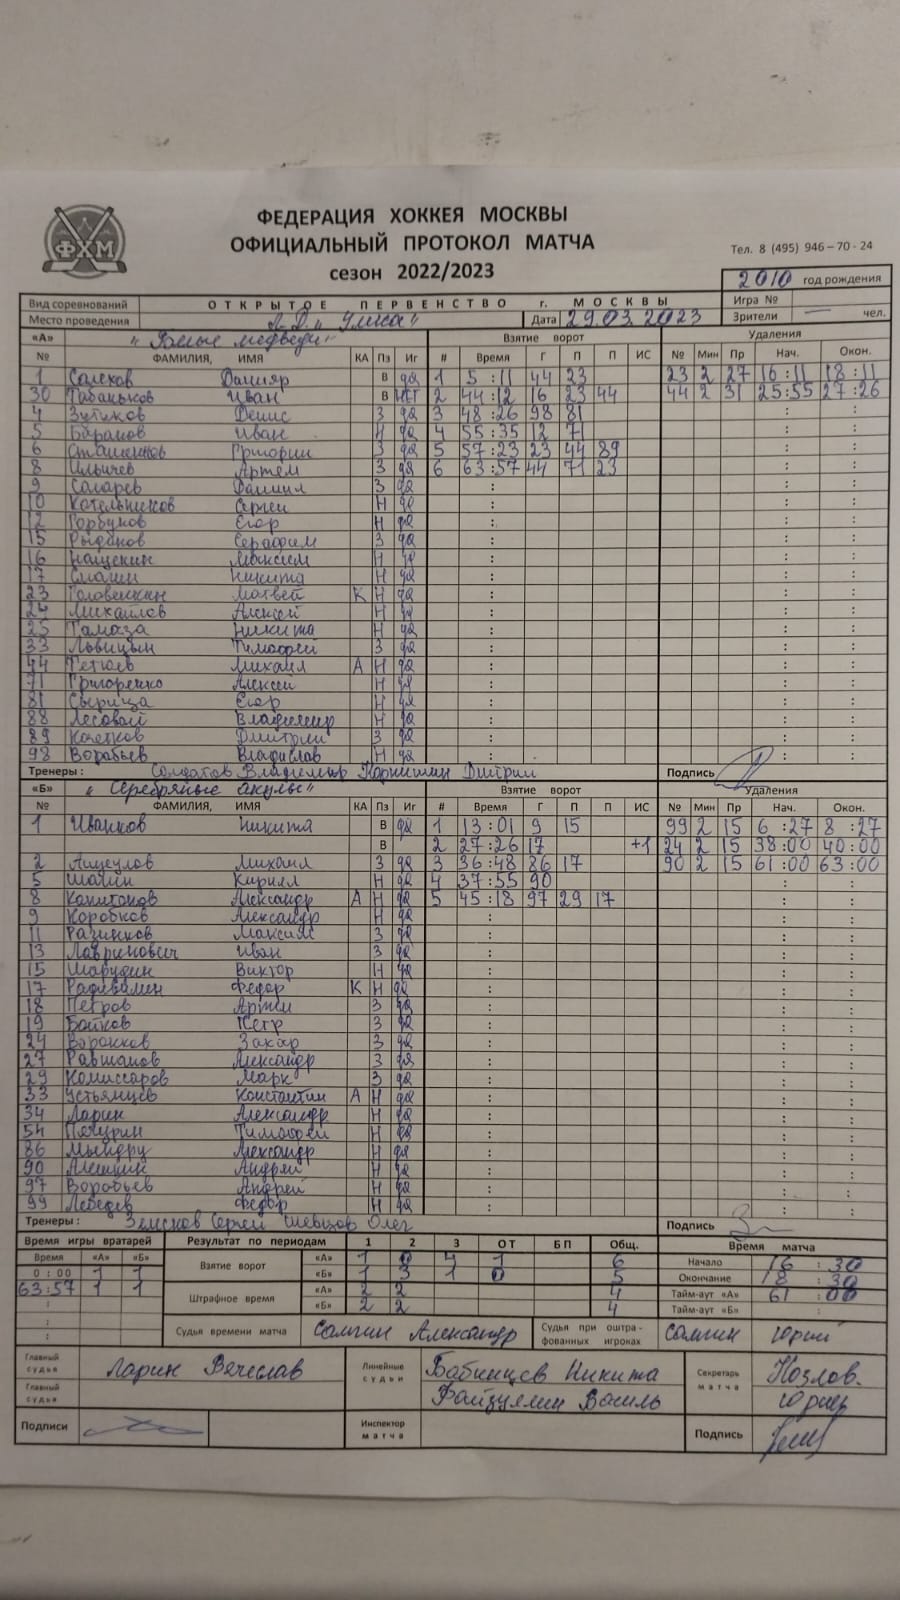 ФХМ
ФЕДЕРАЦИЯ ХОККЕЯ МОСКВЫ
ОФИЦИАЛЬНЫЙ ПРОТОКОЛ МАТЧА
Тел. 8 (495) 946–70-24
сезон 2022/2023
2010 год рождения
Вид соревнований ОТКРЫТОЕ ПЕРВЕНСТВО г. МОСКВЫ Игра №
Место проведения Л.Д. „Умка“ Дата 29.03.2023 Зрители — чел.
«А» „Белые медведи“ Взятие ворот Удаления
№ ФАМИЛИЯ, ИМЯ КА Пз Иг # Время Г П П ИС № Мин Пр Нач. Окон.
1 Салехов Данияр В да 1 5:11 44 23 23 2 27 16:11 18:11
30 Табаньков Иван В нет 2 44:12 16 23 44 44 2 31 25:55 27:26
4 Зутиков Денис З да 3 48:26 98 81
5 Баранов Иван Н да 4 55:35 12 71
6 Сташенков Григорий З да 5 57:23 23 44 89
8 Ильичев Артём З да 6 63:57 44 71 23
9 Сахарев Даниил З да
10 Котельников Сергей Н да
12 Горбунов Егор Н да
15 Рыбаков Серафим З да
16 Нащекин Максим Н да
17 Смагин Никита Н да
23 Головешкин Матвей К Н да
24 Михайлов Алексей Н да
25 Тамаза Никита Н да
33 Львицын Тимофей З да
44 Тетюев Михаил А Н да
71 Григоренко Алексей Н да
81 Сырица Егор Н да
88 Лесовой Владимир Н да
89 Кочетков Дмитрий З да
98 Воробьев Владислав Н да
Тренеры: Солдатов Владимир Дмитрий Подпись
«Б» „Серебряные акулы“ Взятие ворот Удаления
№ ФАМИЛИЯ, ИМЯ КА Пз Иг # Время Г П П ИС № Мин Пр Нач. Окон.
1 Иванков Никита В да 1 13:01 9 15 99 2 15 6:27 8:27
В 2 27:26 17 +1 24 2 15 38:00 40:00
2 Михаил З да 3 36:48 86 17 90 2 15 61:00 63:00
5 Шалин Кирилл Н да 4 37:55 90
8 Капитонов Александр А Н да 5 45:18 97 29 17
9 Коробков Александр Н да
11 Разинков Максим З да
13 Лавринович Иван З да
15 Шарудин Виктор Н да
17 Федор К Н да
18 Петров Артем З да
19 Бойков Петр З да
24 Воронков Захар З да
27 Равшанов Александр З да
29 Комиссаров Марк З да
33 Устьянцев Константин А Н да
34 Ларин Александр Н да
54 Печурин Тимофей Н да
86 Мындру Александр Н да
90 Алешкин Андрей Н да
97 Воробьев Андрей Н да
99 Лебедев Федор Н да
Тренеры: Земсков Сергей Шевцов Олег Подпись
Время игры вратарей Результат по периодам 1 2 3 ОТ БП Общ. Время матча
Время «А» «Б» Взятие ворот «А» 1 0 4 1 6 Начало 16:30
0:00 1 1 «Б» 1 3 1 0 5 Окончание 18:30
63:57 1 1 Штрафное время «А» 2 2 4 Тайм-аут «А» 61:00
«Б» 2 2 4 Тайм-аут «Б» :
Судья времени матча Самгин Александр Судья при оштрафованных игроках Самгин Юрий
Главный судья Ларин Вячеслав Линейные судьи Бабинцев Никита Секретарь матча Козлов
Главный судья Файзуллин Василь Юрий
Подписи Инспектор матча Подпись